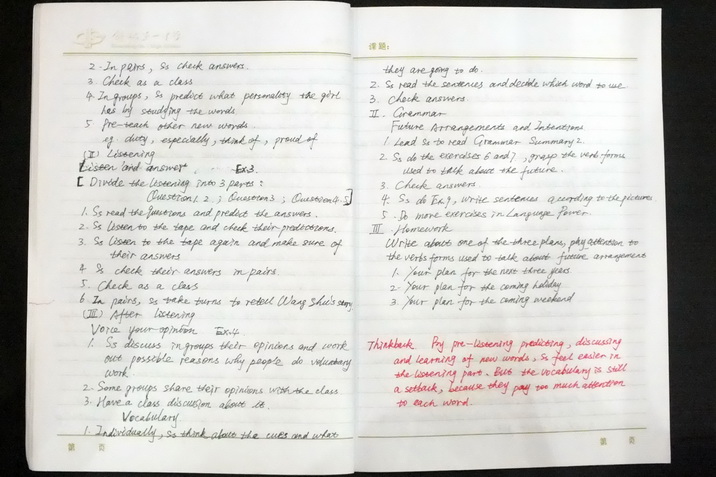 2. In pairs, Ss check answers.
3. Check as a class
4. In groups, Ss predict what personality the girl
has by studying the words
5. Pre-teach other new words
eg. duty, especially, think of, proud of
(II) Listening
Listen and answer. Ex3.
[ Divide the listening into 3 parts:
Question1.2; Question3; Question4.5]
1. Ss read the questions and predict the answers.
2. Ss listen to the tape and check their predictions.
3. Ss listen to the tape again and make sure of
their answers
4. Ss check their answers in pairs
5. Check as a class
6. In pairs, Ss take turns to retell Wang Shu's story.
(III) After listening
Voice your opinion Ex.4
1. Ss discuss in groups their opinions and work
out possible reasons why people do voluntary
work
2. Some groups share their opinions with the class
3. Have a class discussion about it.
Vocabulary
1. Individually, Ss think about the cues and what
第 页
课题:
they are going to do.
2. Ss read the sentences and decide which word to use
3. Check answers
II. Grammar
Future Arrangements and Intentions
1. Lead Ss to read Grammar Summary 2.
2. Ss do the exercises 6 and 7, grasp the verb forms
used to talk about the future.
3. Check answers
4. Ss do Ex.9, write sentences according to the pictures
5. Do more exercises in Language Power.
III. Homework
Write about one of the three plans, pay attention to
the verbs forms used to talk about future arrangement
1. Your plan for the next three years
2. Your plan for the coming holiday
3. Your plan for the coming weekend
Thinkback Pry pre-listening predicting, discussing
and learning of new words, Ss feel easier in
the listening part. But the vocabulary is still
a setback, because they pay too much attention
to each word.
第 页